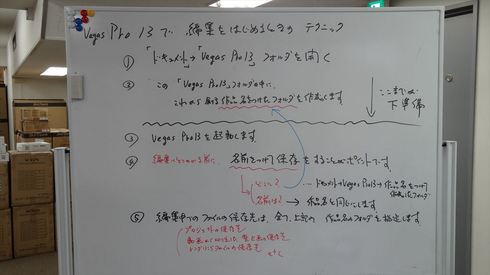 Vegas Pro 13で 編集をはじめるときの テクニック
① 「ドキュメント」→「Vegas Pro13」フォルダを開く
② この「Vegas Pro13」フォルダの中に、
これから創る作品名をつけたフォルダを作成します
ここまでが
下準備
③ Vegas Pro13を起動します。
④ 編集にとりかかる前に、名前をつけて保存をすることがポイントです。
どこに? ドキュメント→Vegas Pro13→作品名をつけて
作成したフォルダ
名前は? → 作品名と同じにします
⑤ 編集中でのファイルの保存先は、全て、上記の 作品名のフォルダを指定します。
プロジェクトの保存先
レンダリングファイルの保存先
etc